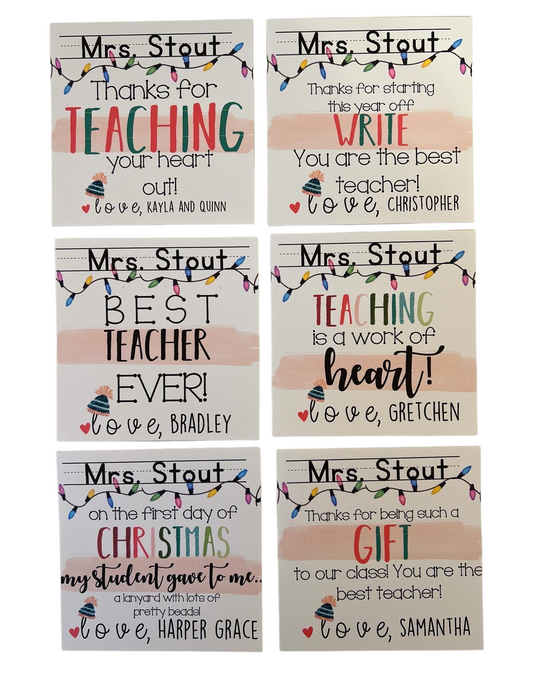 Mrs. Stout
Thanks for
TEACHING
your heart
out!
love, KAYLA AND QUINN
Mrs. Stout
Thanks for starting
this year off
WRITE
You are the best
teacher!
love, CHRISTOPHER
Mrs. Stout
BEST
TEACHER
EVER!
love, BRADLEY
Mrs. Stout
TEACHING
is a work of
heart!
love, GRETCHEN
Mrs. Stout
on the first day of
CHRISTMAS
my student gave to me..
a lanyard with lots of
pretty beads!
love, HARPER GRACE
Mrs. Stout
Thanks for being such a
GIFT
to our class! You are the
best teacher!
love, SAMANTHA